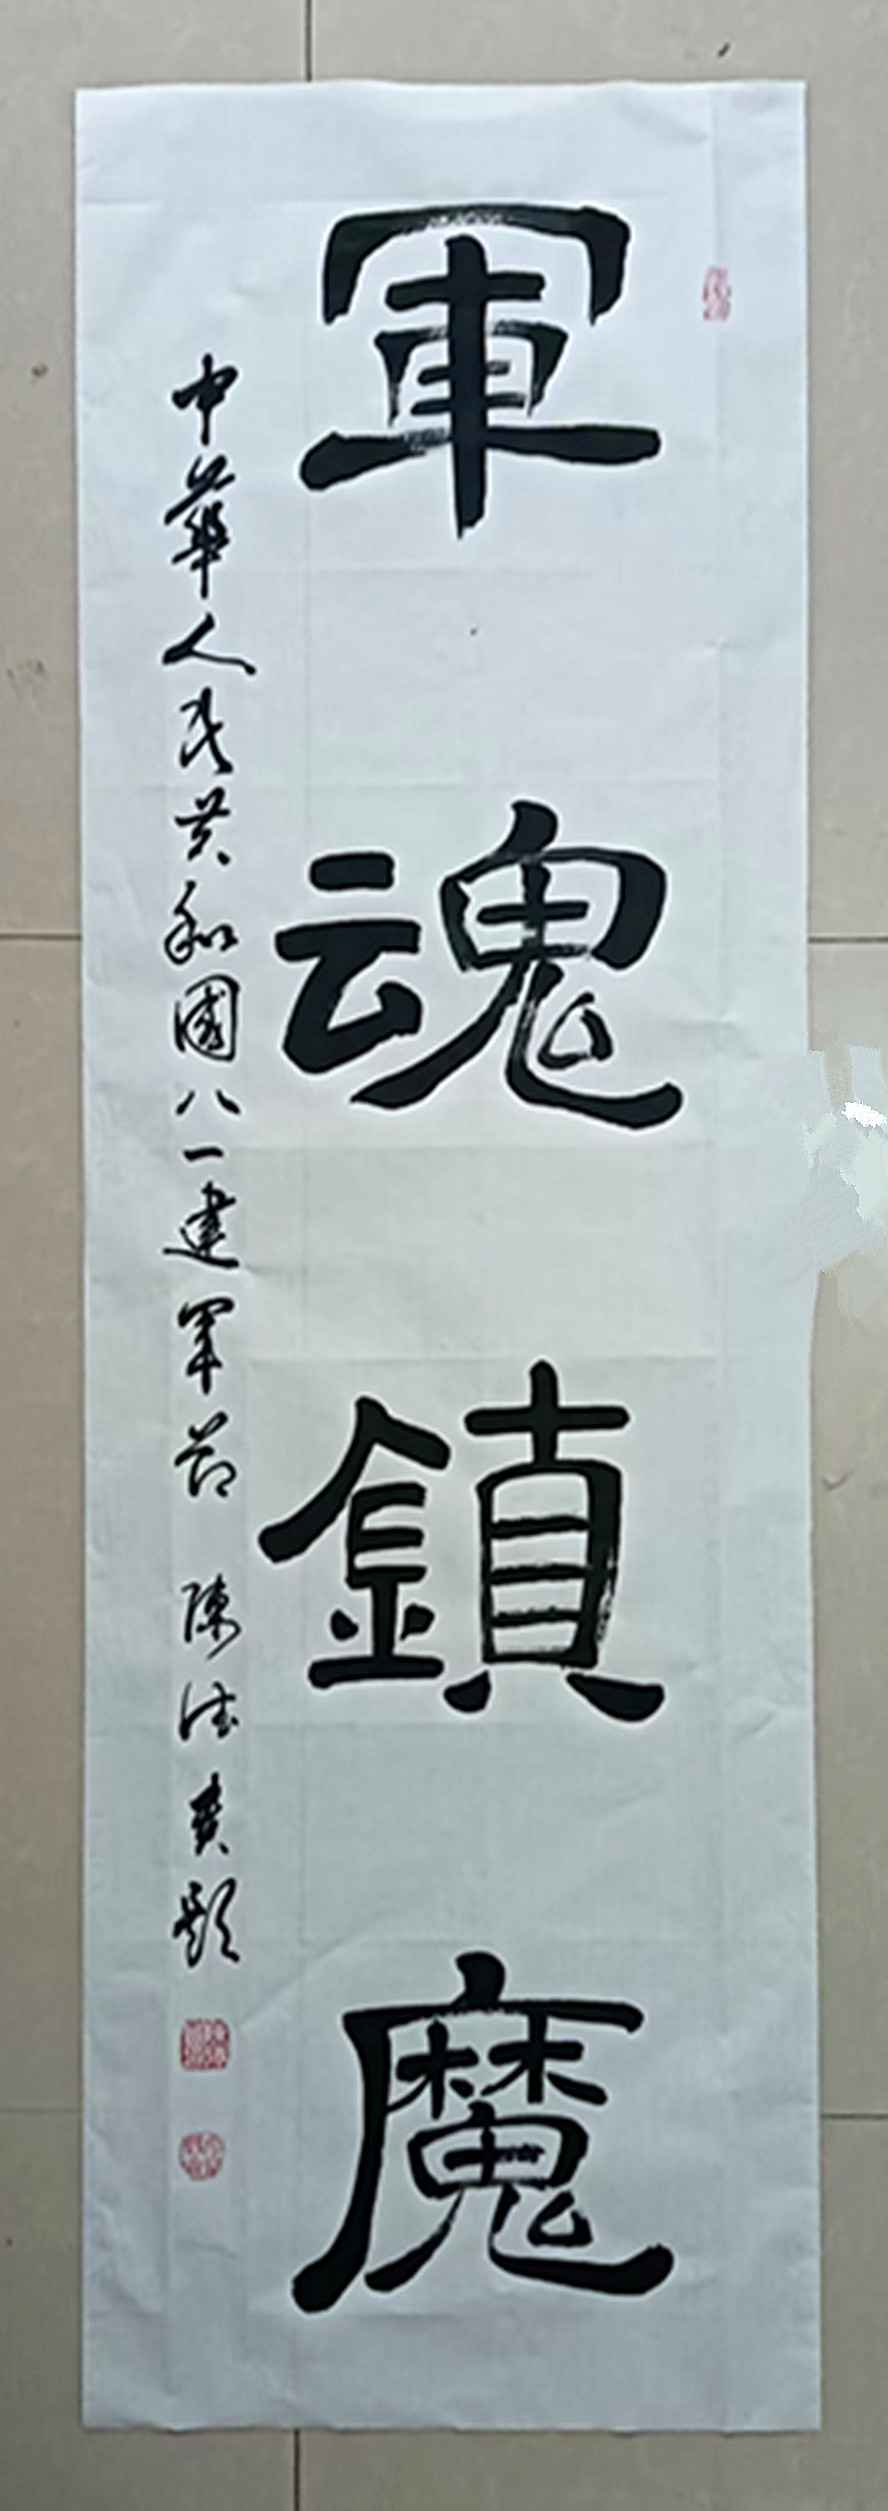 軍魂鎮魔
中華人民共和國八一建军节 陳法贵题